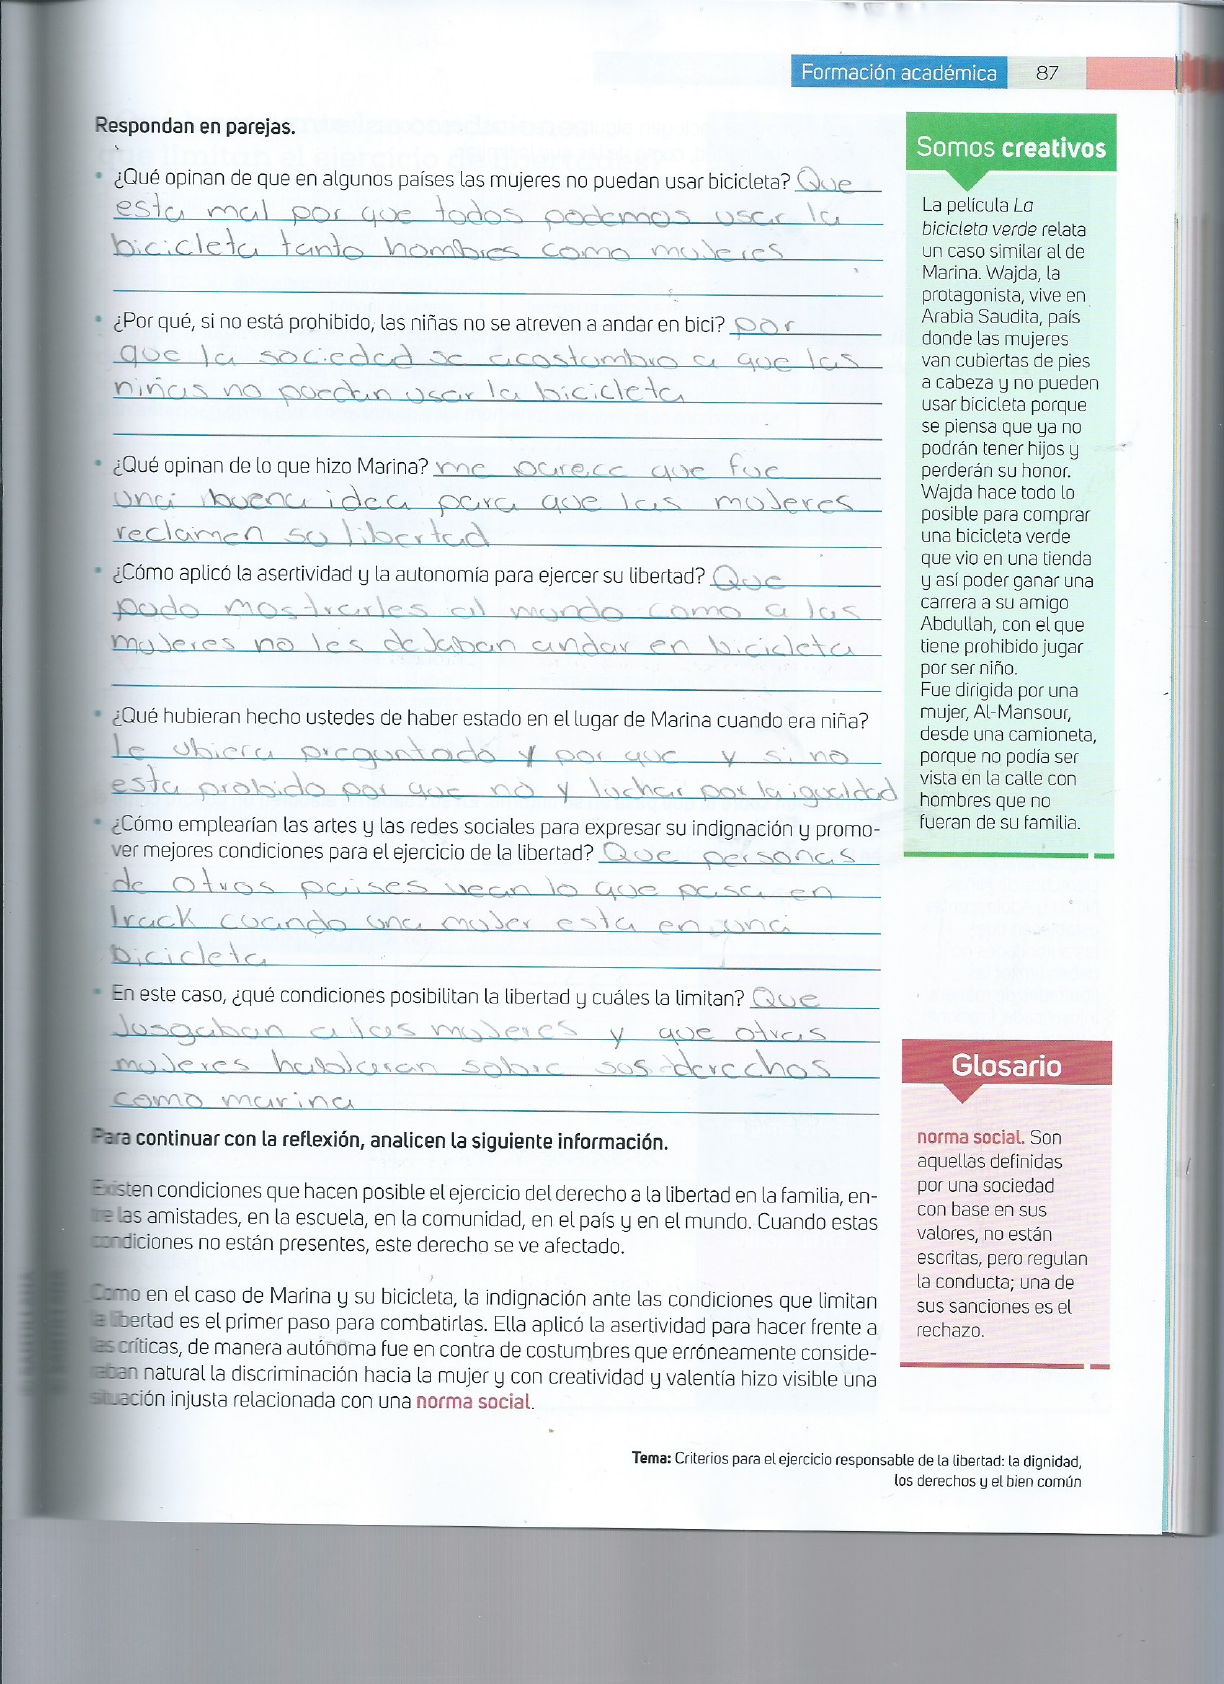 Formación académica 87
Respondan en parejas.
• ¿Qué opinan de que en algunos países las mujeres no puedan usar bicicleta? Que
esta mal por que todos podemos usar la
bicicleta tanto hombres como mujeres
• ¿Por qué, si no está prohibido, las niñas no se atreven a andar en bici? por
que la sociedad se acostumbro a que las
niñas no puedan usar la bicicleta
• ¿Qué opinan de lo que hizo Marina? me parece que fue
una buena idea para que las mujeres
reclamen su libertad
• ¿Cómo aplicó la asertividad y la autonomía para ejercer su libertad? Que
pudo mostrarles al mundo como a las
mujeres no les dejaban andar en bicicleta
• ¿Qué hubieran hecho ustedes de haber estado en el lugar de Marina cuando era niña?
le ubiera preguntado y por que y si no
esta probido por que no y luchar por la igualdad
• ¿Cómo emplearían las artes y las redes sociales para expresar su indignación y promo-
ver mejores condiciones para el ejercicio de la libertad? Que personas
de otros paises vean lo que pasa en
Irack cuando una mujer esta en una
bicicleta
• En este caso, ¿qué condiciones posibilitan la libertad y cuáles la limitan? Que
jusgaban a las mujeres y que otras
mujeres hablaran sobre sus derechos
como marina
Para continuar con la reflexión, analicen la siguiente información.
Existen condiciones que hacen posible el ejercicio del derecho a la libertad en la familia, en-
tre las amistades, en la escuela, en la comunidad, en el país y en el mundo. Cuando estas
condiciones no están presentes, este derecho se ve afectado.
Como en el caso de Marina y su bicicleta, la indignación ante las condiciones que limitan
la libertad es el primer paso para combatirlas. Ella aplicó la asertividad para hacer frente a
las críticas, de manera autónoma fue en contra de costumbres que erróneamente conside-
raban natural la discriminación hacia la mujer y con creatividad y valentía hizo visible una
situación injusta relacionada con una norma social.
Somos creativos
La película La
bicicleta verde relata
un caso similar al de
Marina. Wajda, la
protagonista, vive en
Arabia Saudita, país
donde las mujeres
van cubiertas de pies
a cabeza y no pueden
usar bicicleta porque
se piensa que ya no
podrán tener hijos y
perderán su honor.
Wajda hace todo lo
posible para comprar
una bicicleta verde
que vio en una tienda
y así poder ganar una
carrera a su amigo
Abdullah, con el que
tiene prohibido jugar
por ser niño.
Fue dirigida por una
mujer, Al-Mansour,
desde una camioneta,
porque no podía ser
vista en la calle con
hombres que no
fueran de su familia.
Glosario
norma social. Son
aquellas definidas
por una sociedad
con base en sus
valores, no están
escritas, pero regulan
la conducta; una de
sus sanciones es el
rechazo.
Tema: Criterios para el ejercicio responsable de la libertad: la dignidad,
los derechos y el bien común